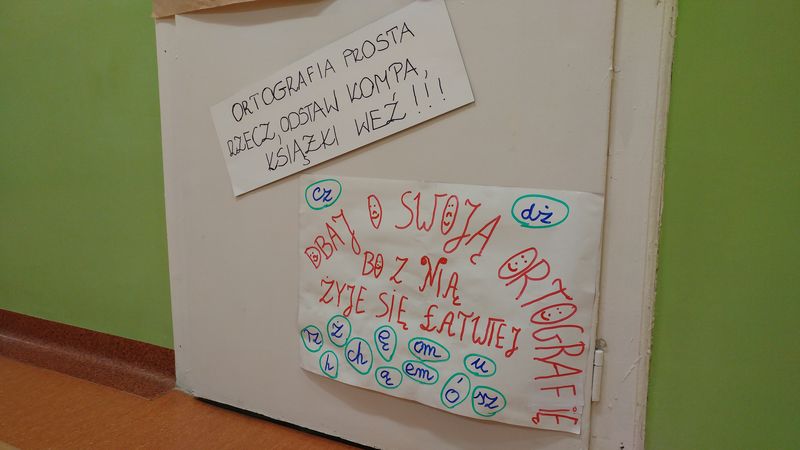 ORTOGRAFIA PROSTA
RZECZ, ODSTAW KOMPA,
KSIĄŻKI WEŹ!!!
cz
dż
DBAJ O SWOJĄ ORTOGRAFIĘ
BO Z NIĄ
ŻYJE SIĘ ŁATWIEJ
rz ż ch ę om u
h ą em ó sz